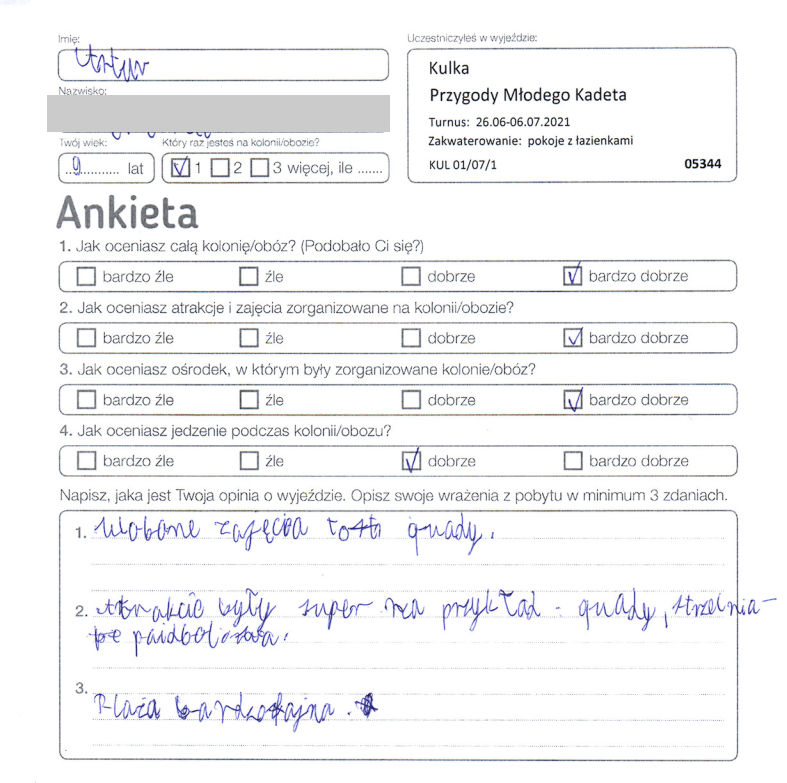 Imię:
Artur
Uczestniczyłeś w wyjeździe:
Kulka
Przygody Młodego Kadeta
Turnus: 26.06-06.07.2021
Zakwaterowanie: pokoje z łazienkami
KUL 01/07/1 05344
Nazwisko:
Twój wiek: Który raz jesteś na kolonii/obozie?
..9........... lat 1 2 3 więcej, ile .......
Ankieta
1. Jak oceniasz całą kolonię/obóz? (Podobało Ci się?)
bardzo źle źle dobrze bardzo dobrze
2. Jak oceniasz atrakcje i zajęcia zorganizowane na kolonii/obozie?
bardzo źle źle dobrze bardzo dobrze
3. Jak oceniasz ośrodek, w którym były zorganizowane kolonie/obóz?
bardzo źle źle dobrze bardzo dobrze
4. Jak oceniasz jedzenie podczas kolonii/obozu?
bardzo źle źle dobrze bardzo dobrze
Napisz, jaka jest Twoja opinia o wyjeździe. Opisz swoje wrażenia z pobytu w minimum 3 zdaniach.
1. zajęcia quady.
2. były super na przykład - quady, strzelnia-
3. Plaża bardzo fajna.